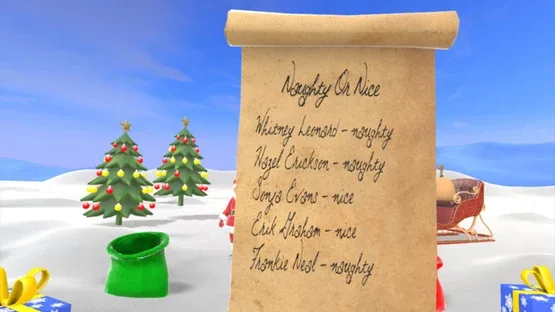 Naughty Or Nice
Whitney Leonard - naughty
Hazel Erickson - naughty
Sonja Evans - nice
Erik Graham - nice
Frankie Neal - naughty